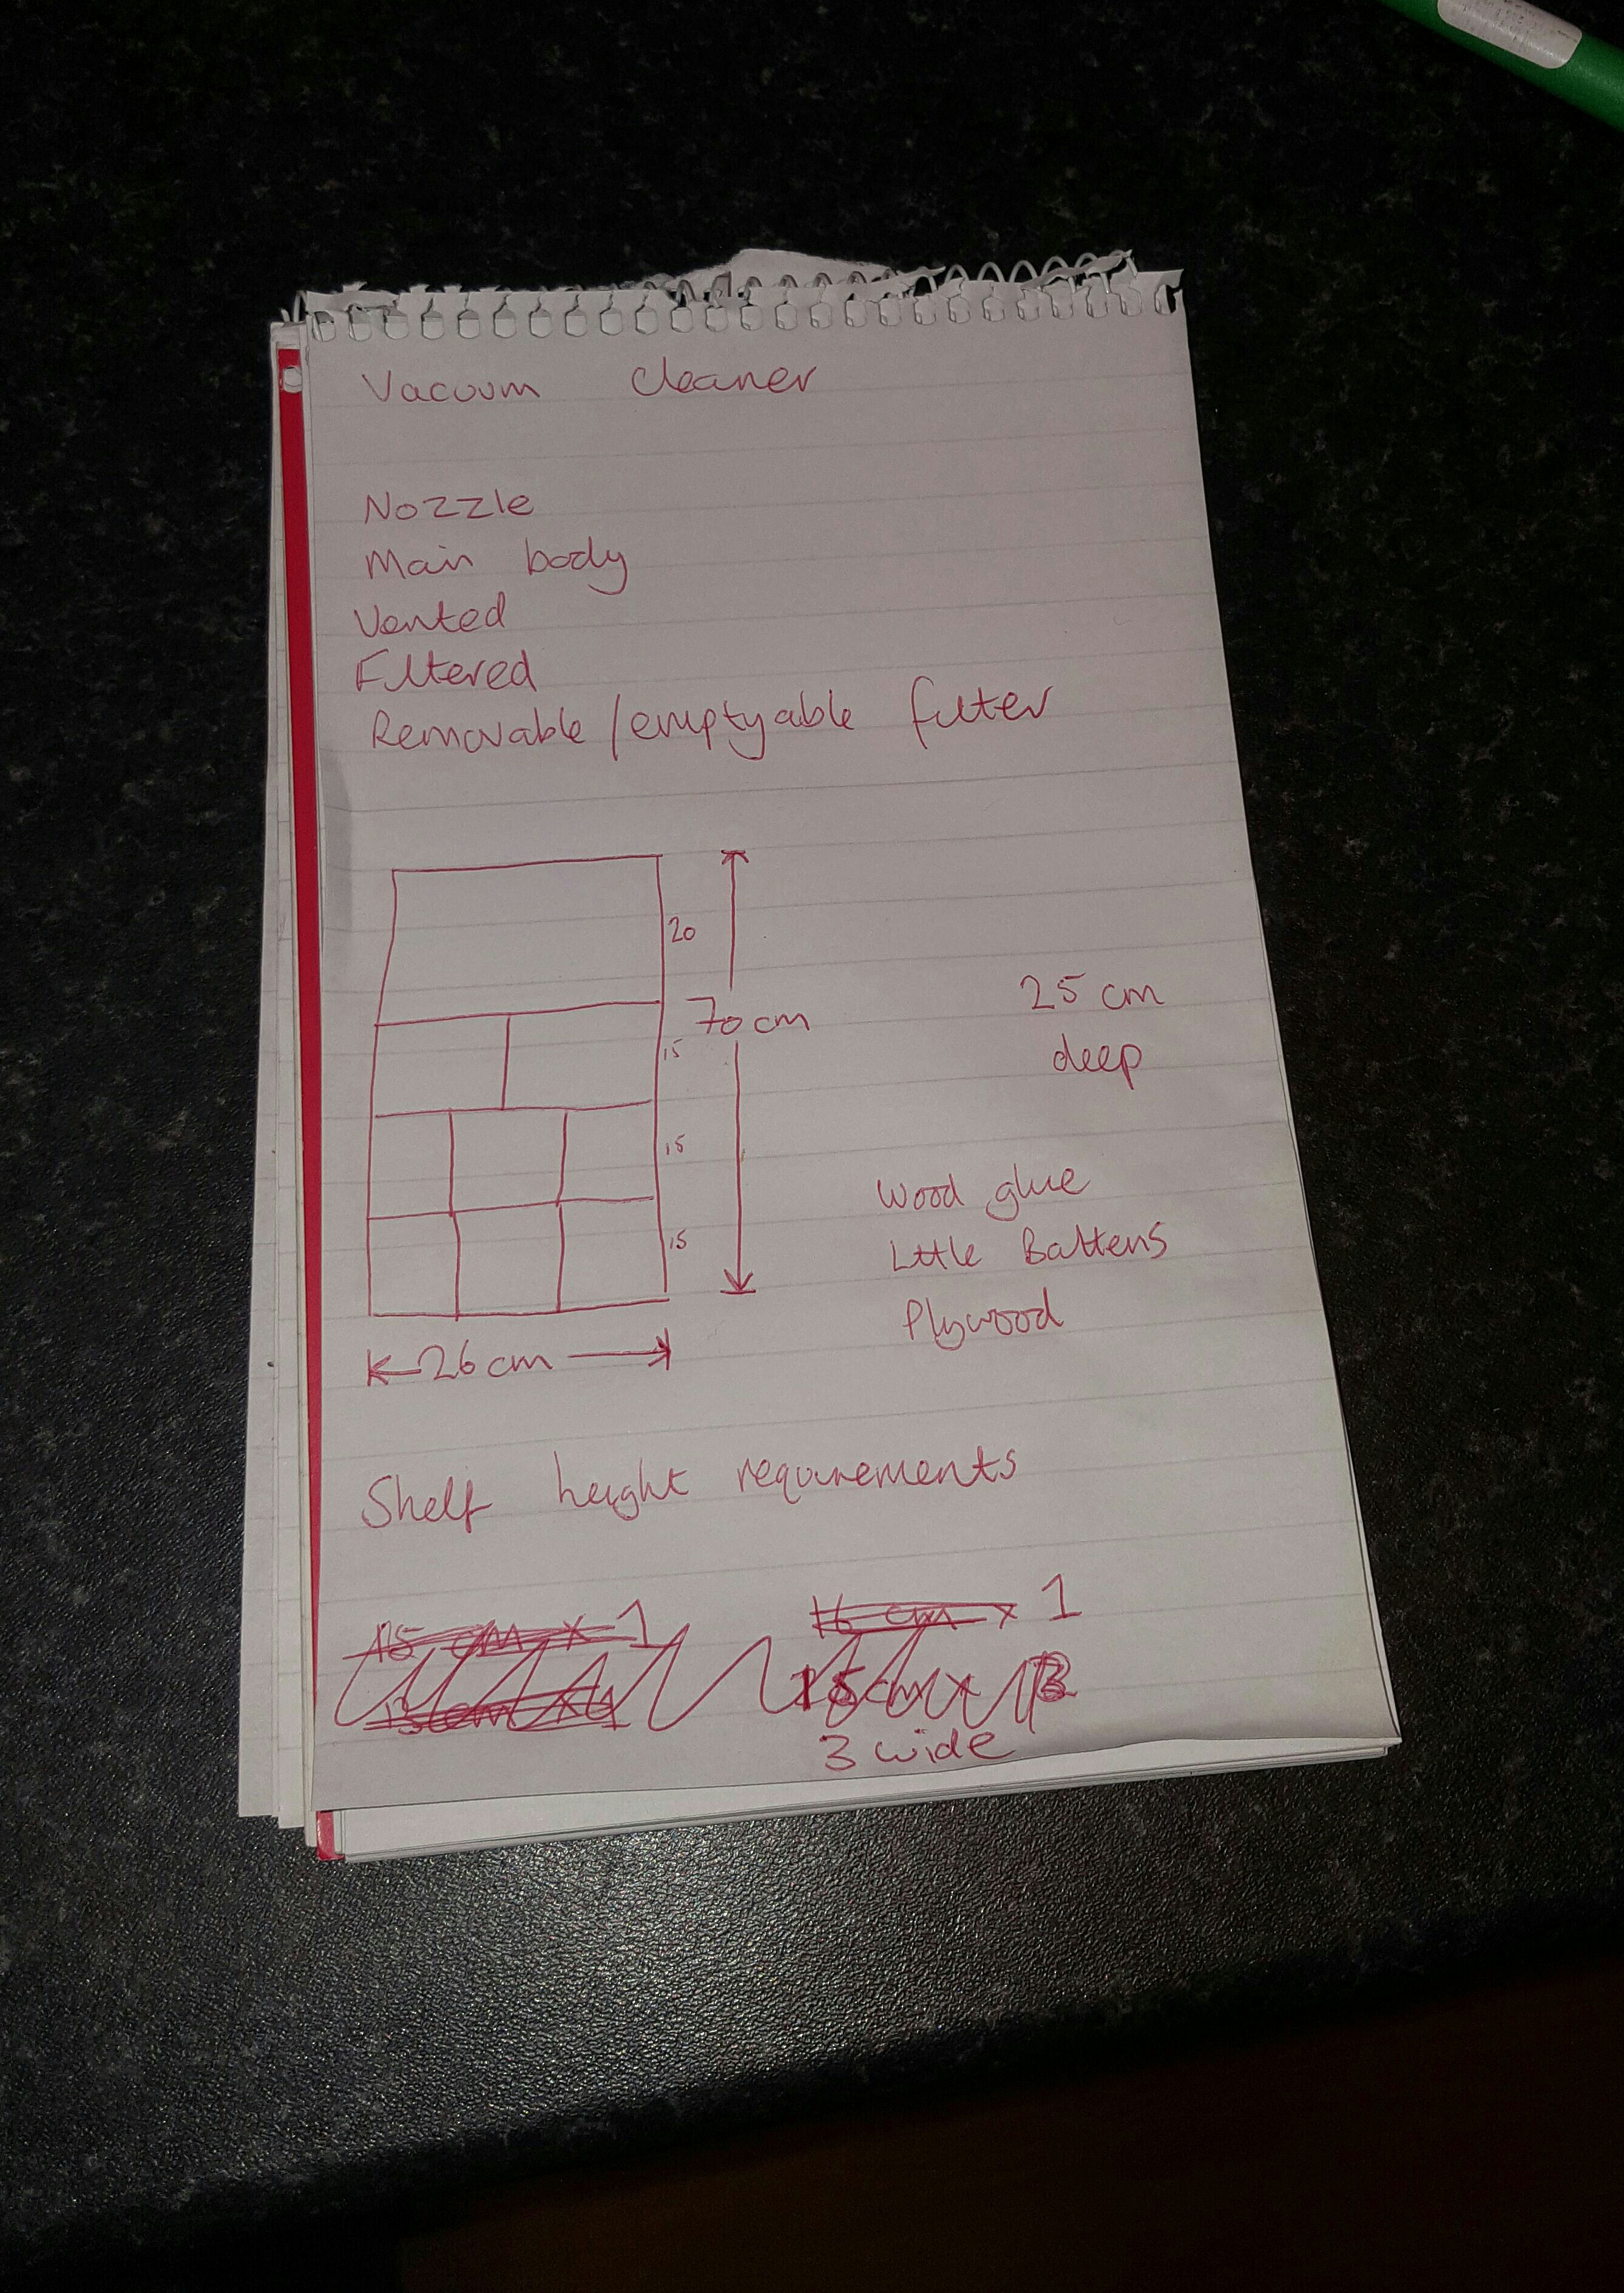 Vacuum cleaner
Nozzle
Main body
Vented
Filtered
Removable/emptyable filter
20
70 cm
15
15
15
26 cm
25 cm
deep
Wood glue
Little Battens
Plywood
Shelf height requirements
15 cm x 1
16 cm x 1
15cm x
3 wide